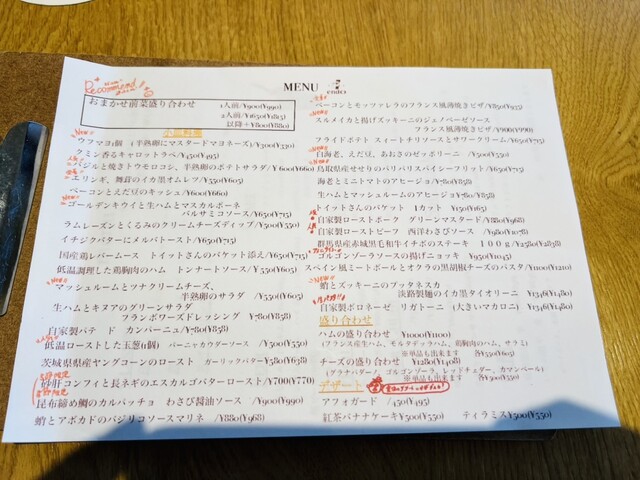 Recommend
MENU
おまかせ前菜盛り合わせ 1人前/¥900(¥990)
2人前/¥650(¥815)
以降+¥800(¥880)
小前料理
New!!
ウフマヨ1個(半熟卵にマスタードマヨネーズ)/¥300(¥330)
クミン香るキャロットラペ/¥450(¥495)
バジルと焼きトウモロコシ、半熟卵のポテトサラダ/¥600(¥660)
エリンギ、舞茸のイカ墨オムレツ/¥550(¥605)
ベーコンとえだ豆のキッシュ/¥600(¥660)
New!!
ゴールデンキウイと生ハムとマスカルポーネ
バルサミコソース/¥650(¥715)
ラムレーズンとくるみのクリームチーズディップ/¥500(¥550)
イチジクバターにメルバトースト/¥650(¥715)
国産鶏レバームース トイットさんのバケット添え/¥650(¥715)
低温調理した鶏胸肉のハム トンナートソース/¥550(¥605)
New!!
マッシュルームとツナクリームチーズ、
半熟卵のサラダ /¥550(¥605)
生ハムとキヌアのグリーンサラダ
フランボワーズドレッシング ¥780(¥858)
自家製パテ ド カンパーニュ/¥780(¥858)
低温ローストした玉葱1個 バーニャカウダーソース/¥500(¥550)
茨城県県産ヤングコーンのロースト ガーリックバター¥580(¥638)
砂肝コンフィと長ネギのエスカルゴバターロースト/¥700(¥770)
昆布締め鯛のカルパッチョ わさび醤油ソース /¥900(¥990)
蛸とアボカドのバジリコソースマリネ /¥880(¥968)
ベーコンとモッツァレラのフランス風薄焼きピザ/¥850(¥935)
New!!
スルメイカと揚げズッキーニのジェノベーゼソース
フランス風薄焼きピザ/¥900(¥990)
フライドポテト スイートチリソースとサワークリーム/¥650(¥715)
New!!
白海老、えだ豆、あおさのゼッポリーニ /¥500(¥550)
New!!
鳥取県産せせりのパリパリスパイシーフリット/¥650(¥715)
海老とミニトマトのアヒージョ/¥780(¥858)
生ハムとマッシュルームのアヒージョ/¥780(¥858)
トイットさんのバケット 1カット /¥150(¥165)
自家製ローストポーク グリーンマスタード/¥880(¥968)
自家製ローストビーフ 西洋わさびソース /¥980(¥1078)
群馬県産赤城黒毛和牛イチボのステーキ 100g/¥2580(¥2838)
ゴルゴンゾーラソースの揚げニョッキ ¥950(¥1045)
スペイン風ミートボールとオクラの黒胡椒チーズのパスタ/¥1100(¥1210)
New!!
蛸とズッキーニのプッタネスカ
淡路製麺のイカ墨タイオリーニ ¥1346(¥1480)
自家製ボロネーゼ リガトーニ (大きいマカロニ) ¥1346(¥1480)
盛り合わせ
ハムの盛り合わせ ¥1000(¥1100)
(フランス産生ハム、モルタデッラハム、鶏胸肉のハム、サラミ)
※単品も出来ます 各¥550(¥605)
チーズの盛り合わせ ¥1280(¥1408)
(グラナパダーノ、ゴルゴンゾーラ、レッドチェダー、カマンベール)
※単品も出来ます 各¥300(¥330)
デザート
アフォガード /450(¥495)
紅茶バナナケーキ¥500(¥550) ティラミス¥500(¥550)